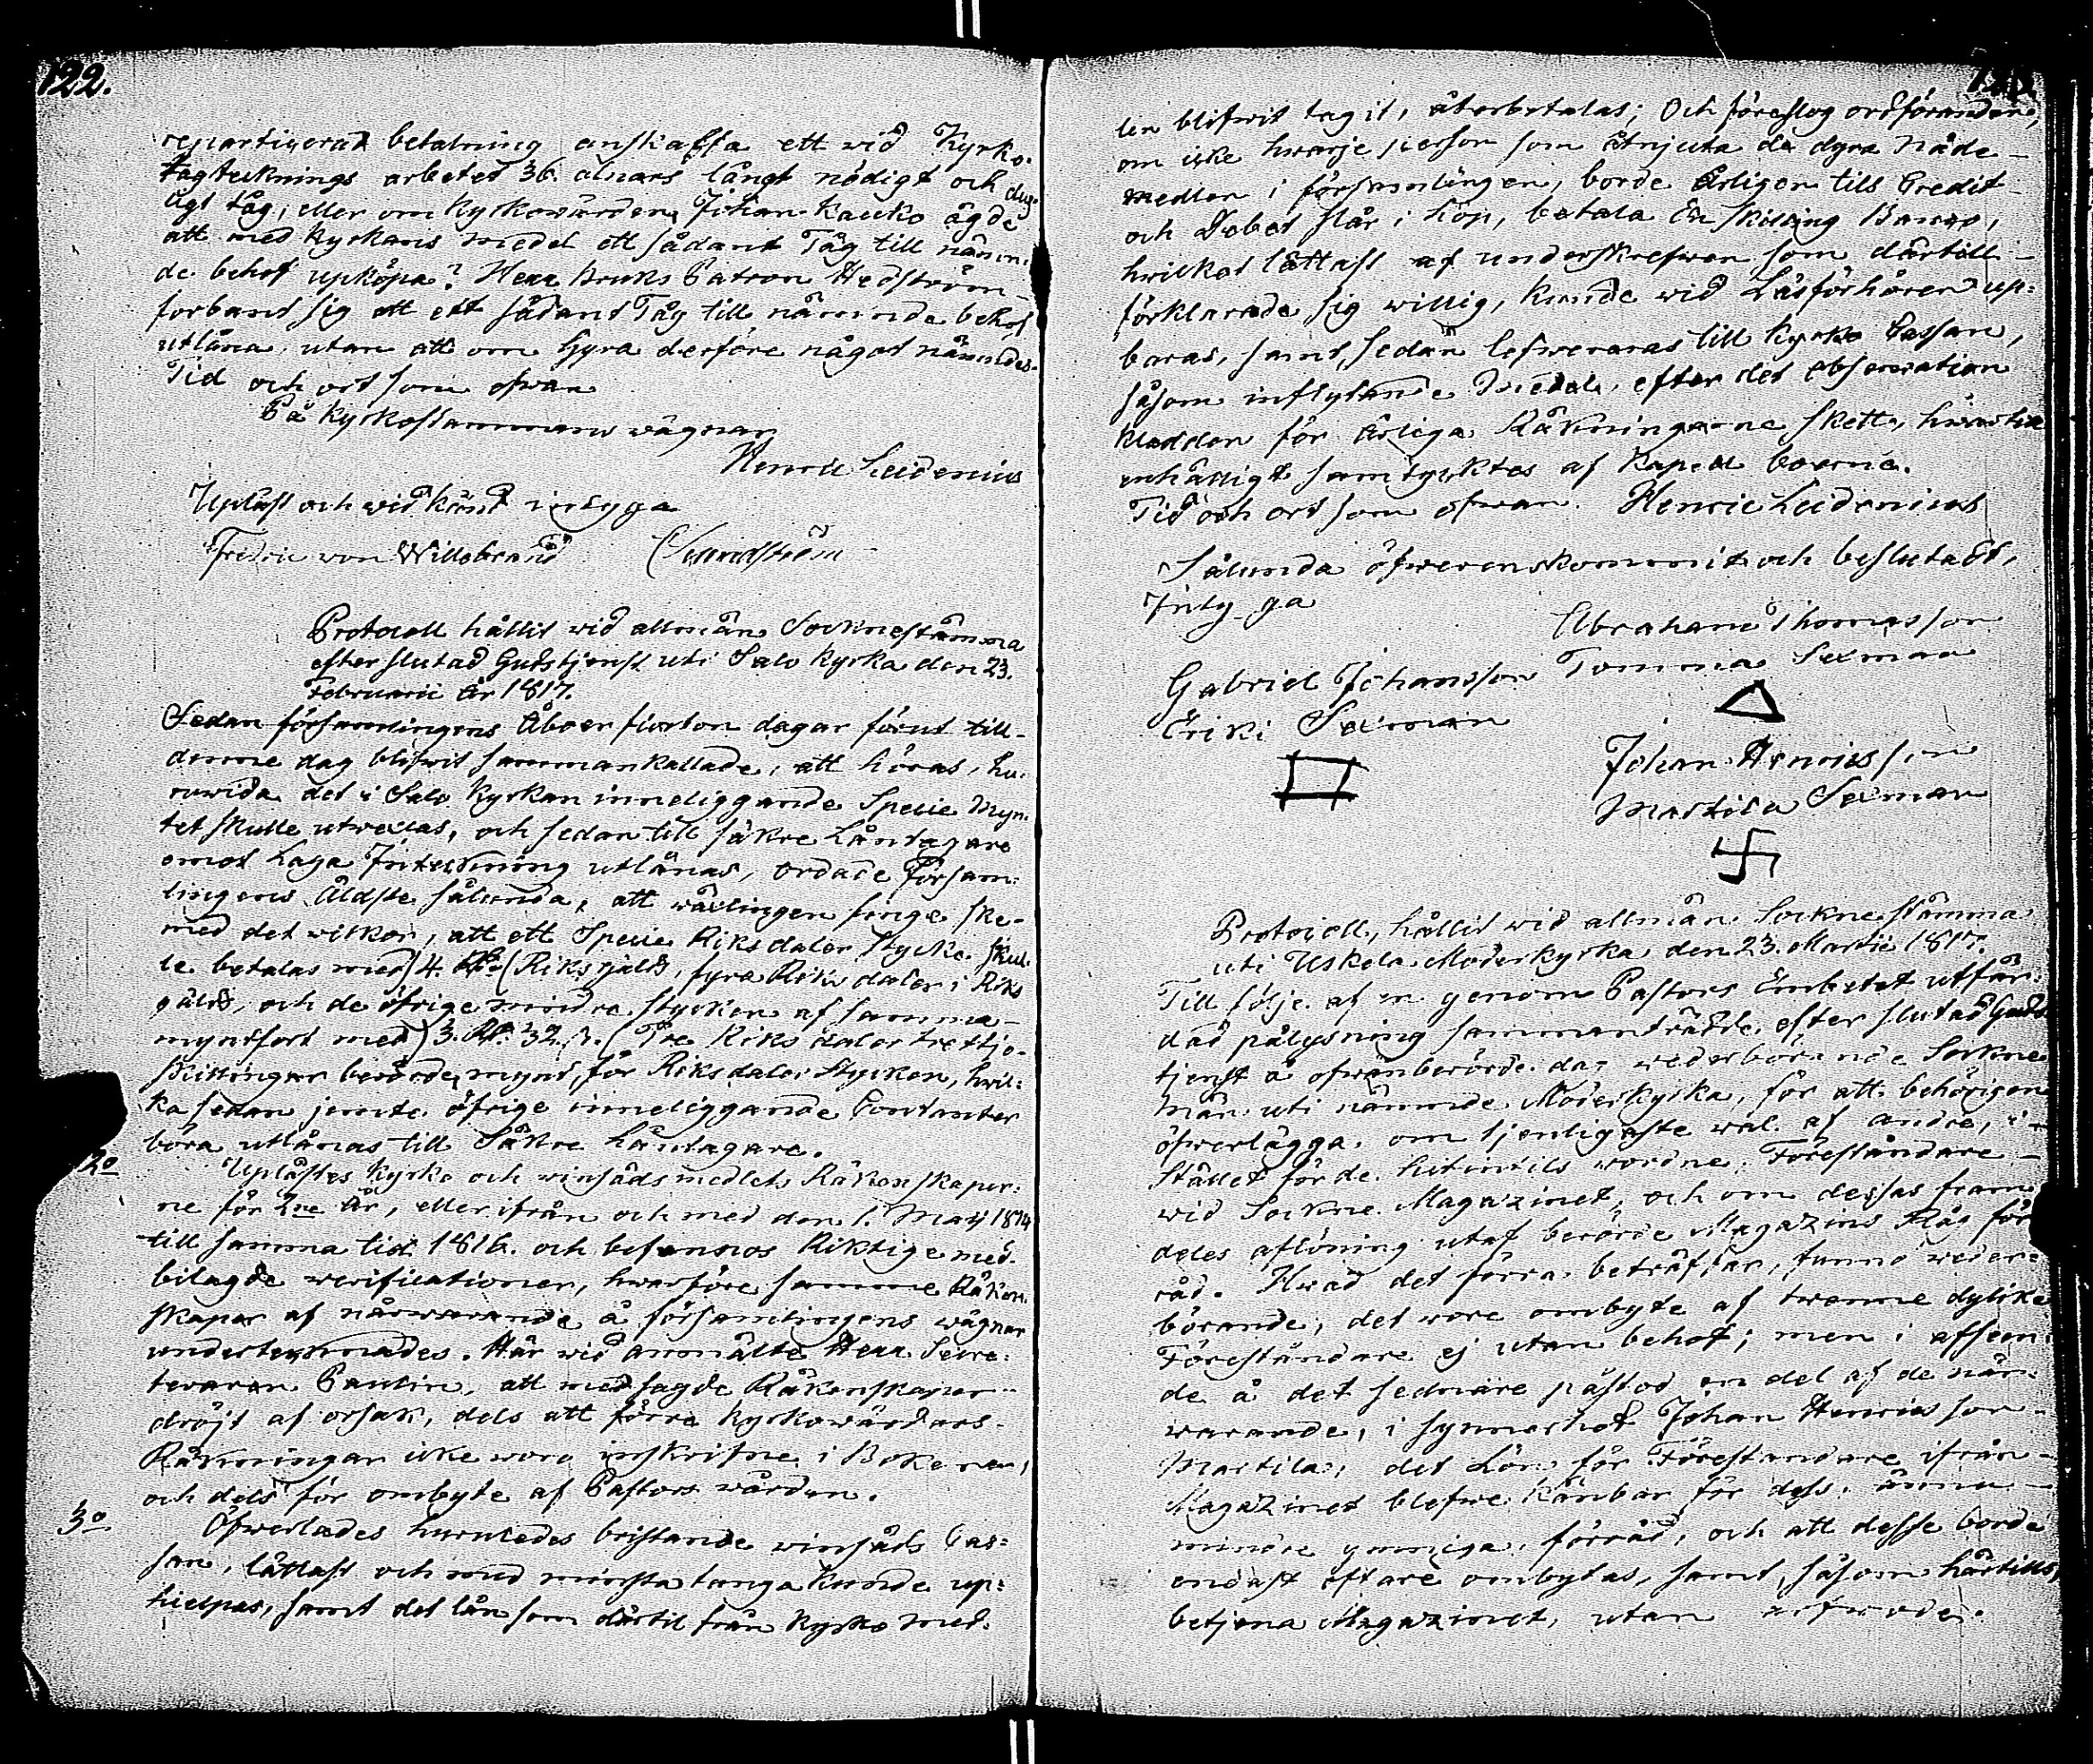 122.
repartigerad betalning anskaffa ett wid Kyrko-
tagtecknings arbetet 36. alnars långt nödigt och dug-
ligt tåg, eller om Kyrkowärden Johan Kauko ägde
att med Kyrkans medel ett sådant Tåg till nämn-
de behof upköpa? Herr Bruks Patron Hedström
förband sig att ett sådant Tåg till nämnde behof
utlåna, utan att om hyra derföre något nämndes.
Tid och ort som ofwan
På Kyrkostämmans wägnar
Henric Leidenius
Upläst och wid känt intyga
Fredric von Willebrand C Sundström
Protocoll hållit wid allmän Socknestämma
efter slutad Gudstjenst uti Salo Kyrka den 23.
Februarii år 1817.
Sedan församlingens Åboer fiorton dagar förut till
denne dag blifwit sammankallade, att höras, hu-
ruwida det i Salo Kyrkan inneliggande Specie Myn-
tet skulle utwexlas, och sedan till säkre Låntagare
emot Laga Inteckning utlånas, ordade Försam-
lingens Äldste sålunda, att wäxlingen finge ske
med det wilkor, att ett Specie Riksdaler Stycke skul-
le betalas med 4. Rd. (Riksgälds, fyra Riksdaler i Riks
gälds, och de öfrige mindre stycken af samma
myntsort med 3. Rd. 32. s. (Tre Riksdaler trettio-
Skillingar berörde mynt, för Riksdaler Stycken, hwil-
ka sedan jemte öfrige inneliggande Contanter
böra utlånas till Säkre Låntagare.
2o
Uplästes Kyrko och winsädsmedlets Räkenskaper-
ne för 2ne År, eller ifrån och med den 1. Maij 1814
till samma tid 1816. och befunnos Riktige med
bilagde werificationer, hwarföre samme Räken-
skaper af närwarande å församlingens wägnar
undertecknades. Här wid anmälte Herr Secre-
teraren Paulin, att med sagde Räkenskaper
dröjt af orsak, dels att förre Kyrkowärdars
Räkningar icke woro inskrifne i Bökerne,
och dels för ombyte af Pastors wården.
3o
Öfwerlades huruledes bristande winsäds Cas-
san, lättast och med minsta tunga kunde up-
hielpas, samt det lån som därtil från Kyrko med-
len blifwit tagit, återbetalas; Och föreslog ordföranden,
om icke hwarje person som åtnjuta de dyra Nåde-
medlen i församlingen, borde årligen tills Credit
och Debet slår i hop, betala En skilling Banco,
hwilket lättast af underskrefwen som därtill
förklarade sig willig, kunde wid Läsförhören up-
baras, samt sedan lefwereras till Kyrko Cassan,
såsom inflytande Medel, efter det obserwation
kladden för årliga Räkningarne skett, hwartill
enhälligt samtycktes af Kapell boerne.
Tid och ort som ofwan. Henric Leidenius
Sålunda öfwerenskommit och beslutadt,
Intyga
Abraham Thomasson
Gabriel Johansson Tommia Sexman
Eriki Sexman
Johan Henricsson
Martila Sexman
Protocoll, hållit wid allmän Sockne stämma
uti Uskela Moderkyrka den 23. Martii 1817.
Till följe af en genom Pastors Embetet utfär-
dad pålysning sammanträdde efter slutad Guds-
tjenst å ofwanberörde dag wederbörande Sockne
män uti nämnde Moderkyrka, för att behörigen
öfwerlägga, om tjenligaste wal af andre, i-
stället för de hitintils wordne Föreståndare
wid Sockne Magazinet, och om dessas fram-
deles aflöning utaf berörde Magazins Råg för-
råd. Hwad det förra beträffar, funno weder-
börande, det wore ombyte af twenne dylike
Föreståndare ej utan behof; men i afseen-
de å det sednare påstod en del af de när-
warande, i synnerhet Johan Henricsson
Martila, det Lön för Föreståndare ifrån
Magazinet blefwe känbar för dess ännu
mindre ymniga förråd, och att desse borde
endast oftare ombytas, samt, såsom härtills,
betjena Magazinet, utan